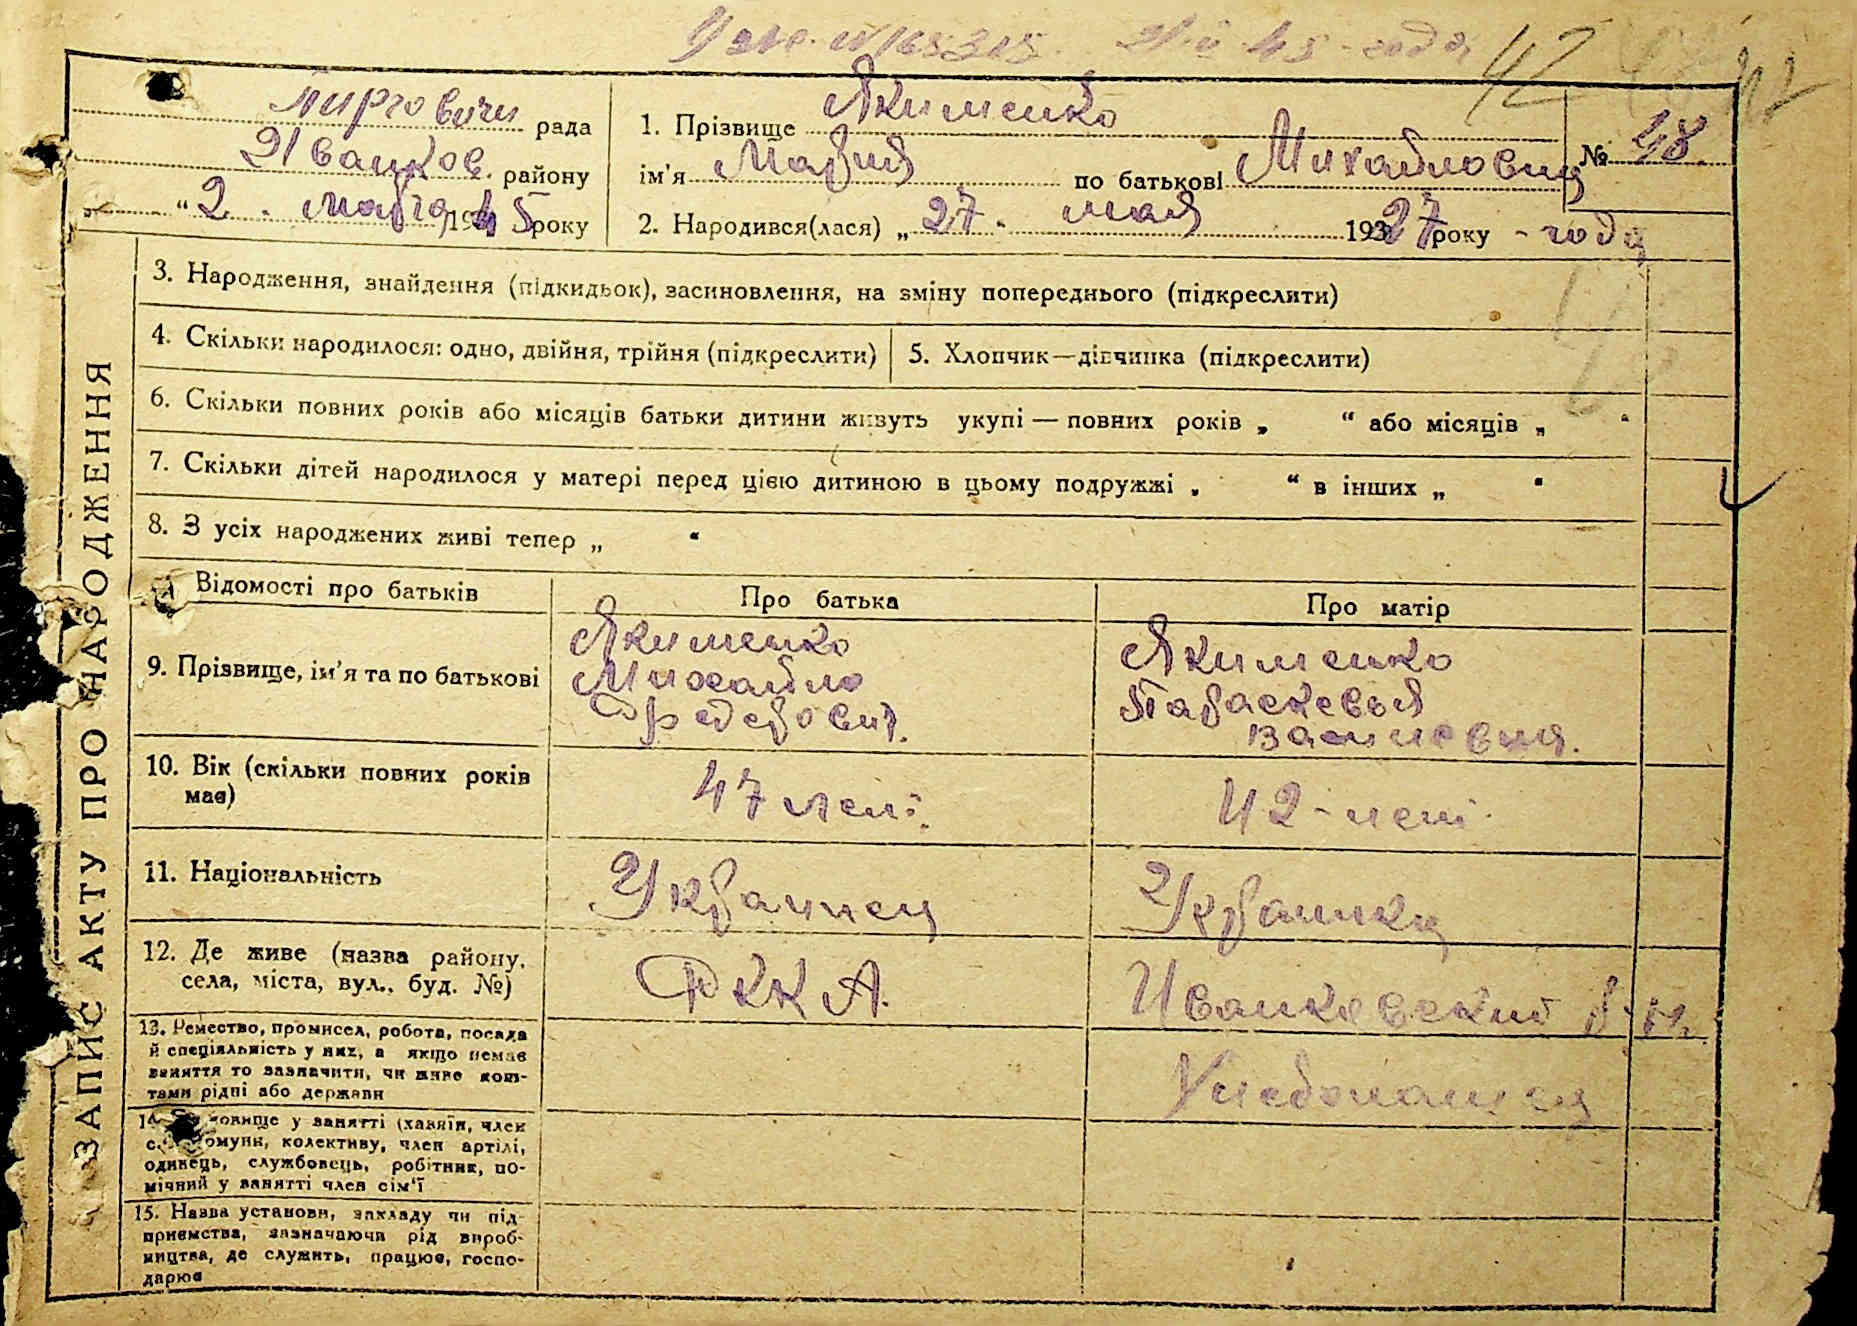 42
Пирговичи рада
Иванков. району
„ “ 2. марта 1945 року
1. Прізвище Якименко
№ 48.
ім'я Мария по батькові Михайловна
2. Народився(лася) „ 27. мая 1927 року - года
ЗАПИС АКТУ ПРО НАРОДЖЕННЯ
3. Народження, знайдення (підкидьок), засиновлення, на зміну попереднього (підкреслити)
4. Скільки народилося: одно, двійня, трійня (підкреслити)
5. Хлопчик—дівчинка (підкреслити)
6. Скільки повних років або місяців батьки дитини живуть укупі — повних років „ “ або місяців „ “
7. Скільки дітей народилося у матері перед цією дитиною в цьому подружжі „ “ в інших „ “
8. З усіх народжених живі тепер „ “
Відомості про батьків
Про батька
Про матір
9. Прізвище, ім'я та по батькові
Якименко
Михайло
Федорович.
Якименко
Параскевья
Василевна.
10. Вік (скільки повних років
має)
47 лет.
42 - лет.
11. Національність
Украинец
Украинка
12. Де живе (назва району,
села, міста, вул., буд. №)
РККА.
Иванковский р-н.
13. Ремество, промисел, робота, посада
й спеціяльність у них, а якщо немає
заняття то зазначити, чи живе кош-
тами рідні або держави
Хлебопашец
14. Становище у занятті (хазяїн, член
с.-г. комуни, колективу, член артілі,
одинець, службовець, робітник, по-
мічний у занятті член сім'ї
15. Назва установи, закладу чи під-
приємства, зазначаючи рід вироб-
ництва, де служить, працює, госпо-
дарює